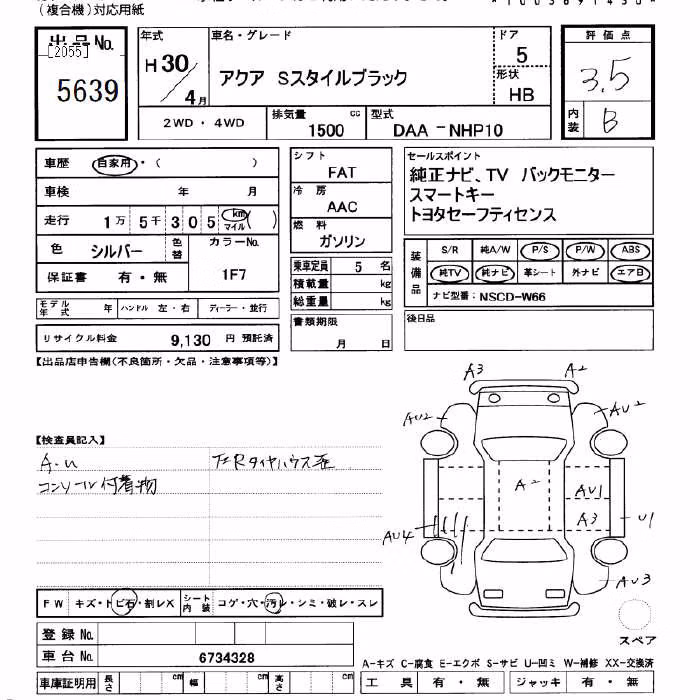 (複合機)対応用紙
出品No.
[2055]
5639
年式
H30/4月
車名・グレード
アクア Sスタイルブラック
ドア
5
形状
HB
評価点
3.5
内装
B
2WD・4WD
排気量 1500 cc
型式 DAA-NHP10
車歴 自家用・( )
車検 年 月
走行 1万5千305 km マイル ( )
色 シルバー 色替
カラーNo.
1F7
保証書 有・無
モデル年式 年 ハンドル 左・右 ディーラー・並行
リサイクル料金 9,130 円 預託済
シフト
FAT
冷房
AAC
燃料
ガソリン
乗車定員 5 名
積載量 kg
総重量 kg
書類期限
月 日
セールスポイント
純正ナビ、TV バックモニター
スマートキー
トヨタセーフティセンス
装備品
S/R 純A/W P/S P/W ABS
純TV 純ナビ 革シート 外ナビ エアB
ナビ型番: NSCD-W66
後日品
【出品店申告欄(不良箇所・欠品・注意事項等)】
【検査員記入】
A・U
コンソール付着物
A3
A2
AU2
AU2
A2
AU1
A3
U1
AU4
AU3
スペア
FW キズ・トビ石・割レX シート内装 コゲ・穴・汚レ・シミ・破レ・スレ
登録No.
車台No. 6734328
車庫証明用 長さ cm 幅 cm 高さ cm
A-キズ C-腐食 E-エクボ S-サビ U-凹ミ W-補修 XX-交換済
工具 有・無 ジャッキ 有・無